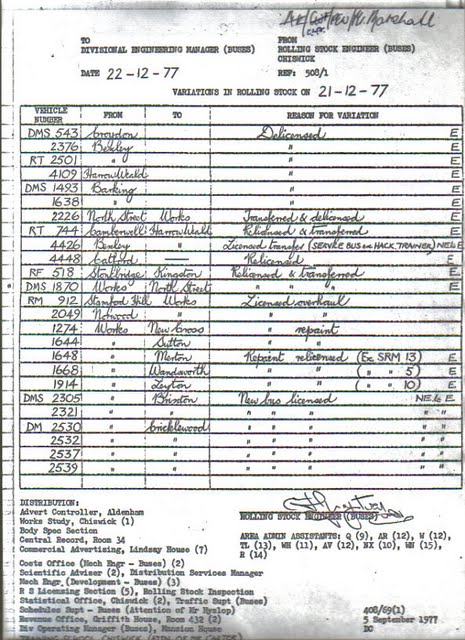 Marshall
TO FROM
DIVISIONAL ENGINEERING MANAGER (BUSES) ROLLING STOCK ENGINEER (BUSES)
CHISWICK
DATE 22-12-77 REF: 508/1
VARIATIONS IN ROLLING STOCK ON 21-12-77
VEHICLE NUMBER FROM TO REASON FOR VARIATION
DMS 543 Croydon Delicensed E
2376 Bexley " E
RT 2501 " " E
4109 Harrow Weald " E
DMS 1493 Barking " E
1638 " " E
2226 North Street Works Transferred & delicensed E
RT 744 Camberwell Harrow Weald Relicensed & transferred E
4426 Bexley " Licensed transfer (SERVICE BUS ex HACK, TRAINER) NELG E
4448 Catford — Relicensed E
RF 518 Stockbridge Kingston Relicensed & transferred E
DMS 1870 Works North Street " " " E
RM 912 Stamford Hill Works Licensed overhaul
2049 Norwood " " "
1274 Works New Cross " repaint
1644 " Sutton " "
1648 " Merton Repaint relicensed (Ex. SRM 13) E
1668 " Wandsworth " " ( " " 5) E
1914 " Leyton " " ( " " 10) E
DMS 2305 " Brixton New bus licensed NELG E
2321 " " " " " " "
DM 2530 " Cricklewood " " " " "
2532 " " " " " " "
2537 " " " " " " "
2539 " " " " " " "
DISTRIBUTION:
Advert Controller, Aldenham
Works Study, Chiswick (1)
Body Spec Section
Central Record, Room 34
Commercial Advertising, Lindsay House (7)
ROLLING STOCK ENGINEER (BUSES)
AREA ADMIN ASSISTANTS: Q (9), AR (12), W (12),
TL (13), WH (11), AV (12), NX (10), WN (15),
R (14)
Costs Office (Mech Engr - Buses) (2)
Scientific Adviser (2), Distribution Services Manager
Mech Engr (Development - Buses) (3)
R S Licensing Section (5), Rolling Stock Inspection
Statistical Office, Chiswick (2), Traffic Supt (Buses)
Schedules Supt - Buses (Attention of Mr Hyslop)
Revenue Office, Griffith House, Room 432 (2)
Div Operating Manager (Buses), Mansion House
408/69(1)
5 September 1977
DG